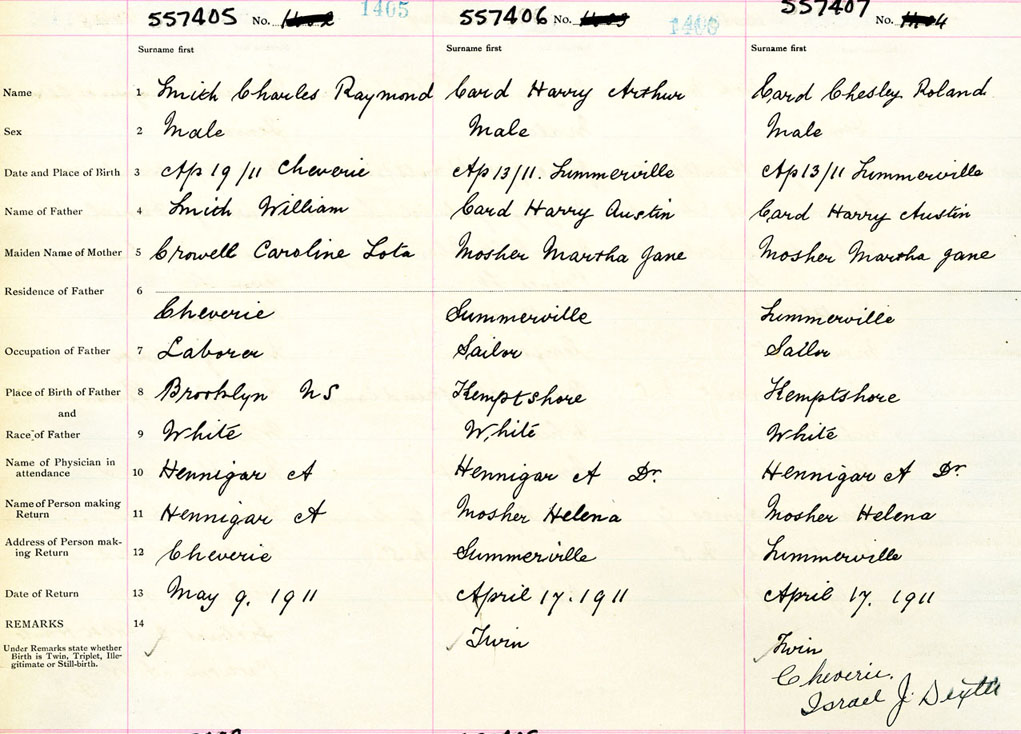 557405 No. 1405 557406 No. 1400 557407 No.
Surname first Surname first Surname first
Name 1 Smith Charles Raymond Card Harry Arthur Card Chesley Roland
Sex 2 Male Male Male
Date and Place of Birth 3 Ap 19/11 Cheverie Ap 13/11. Summerville Ap 13/11 Summerville
Name of Father 4 Smith William Card Harry Austin Card Harry Austin
Maiden Name of Mother 5 Crowell Caroline Lota Mosher Martha Jane Mosher Martha Jane
Residence of Father 6
Cheverie Summerville Summerville
Occupation of Father 7 Laborer Sailor Sailor
Place of Birth of Father 8 Brooklyn NS Kemptshore Kemptshore
and
Race of Father 9 White White White
Name of Physician in
attendance 10 Hennigar A Hennigar A Dr. Hennigar A Dr.
Name of Person making
Return 11 Hennigar A Mosher Helena Mosher Helena
Address of Person mak-
ing Return 12 Cheverie Summerville Summerville
Date of Return 13 May 9, 1911 April 17. 1911 April 17, 1911
REMARKS 14
Under Remarks state whether
Birth is Twin, Triplet, Ille-
gitimate or Still-birth.
Twin Twin
Cheverie.
Israel J. Dexter